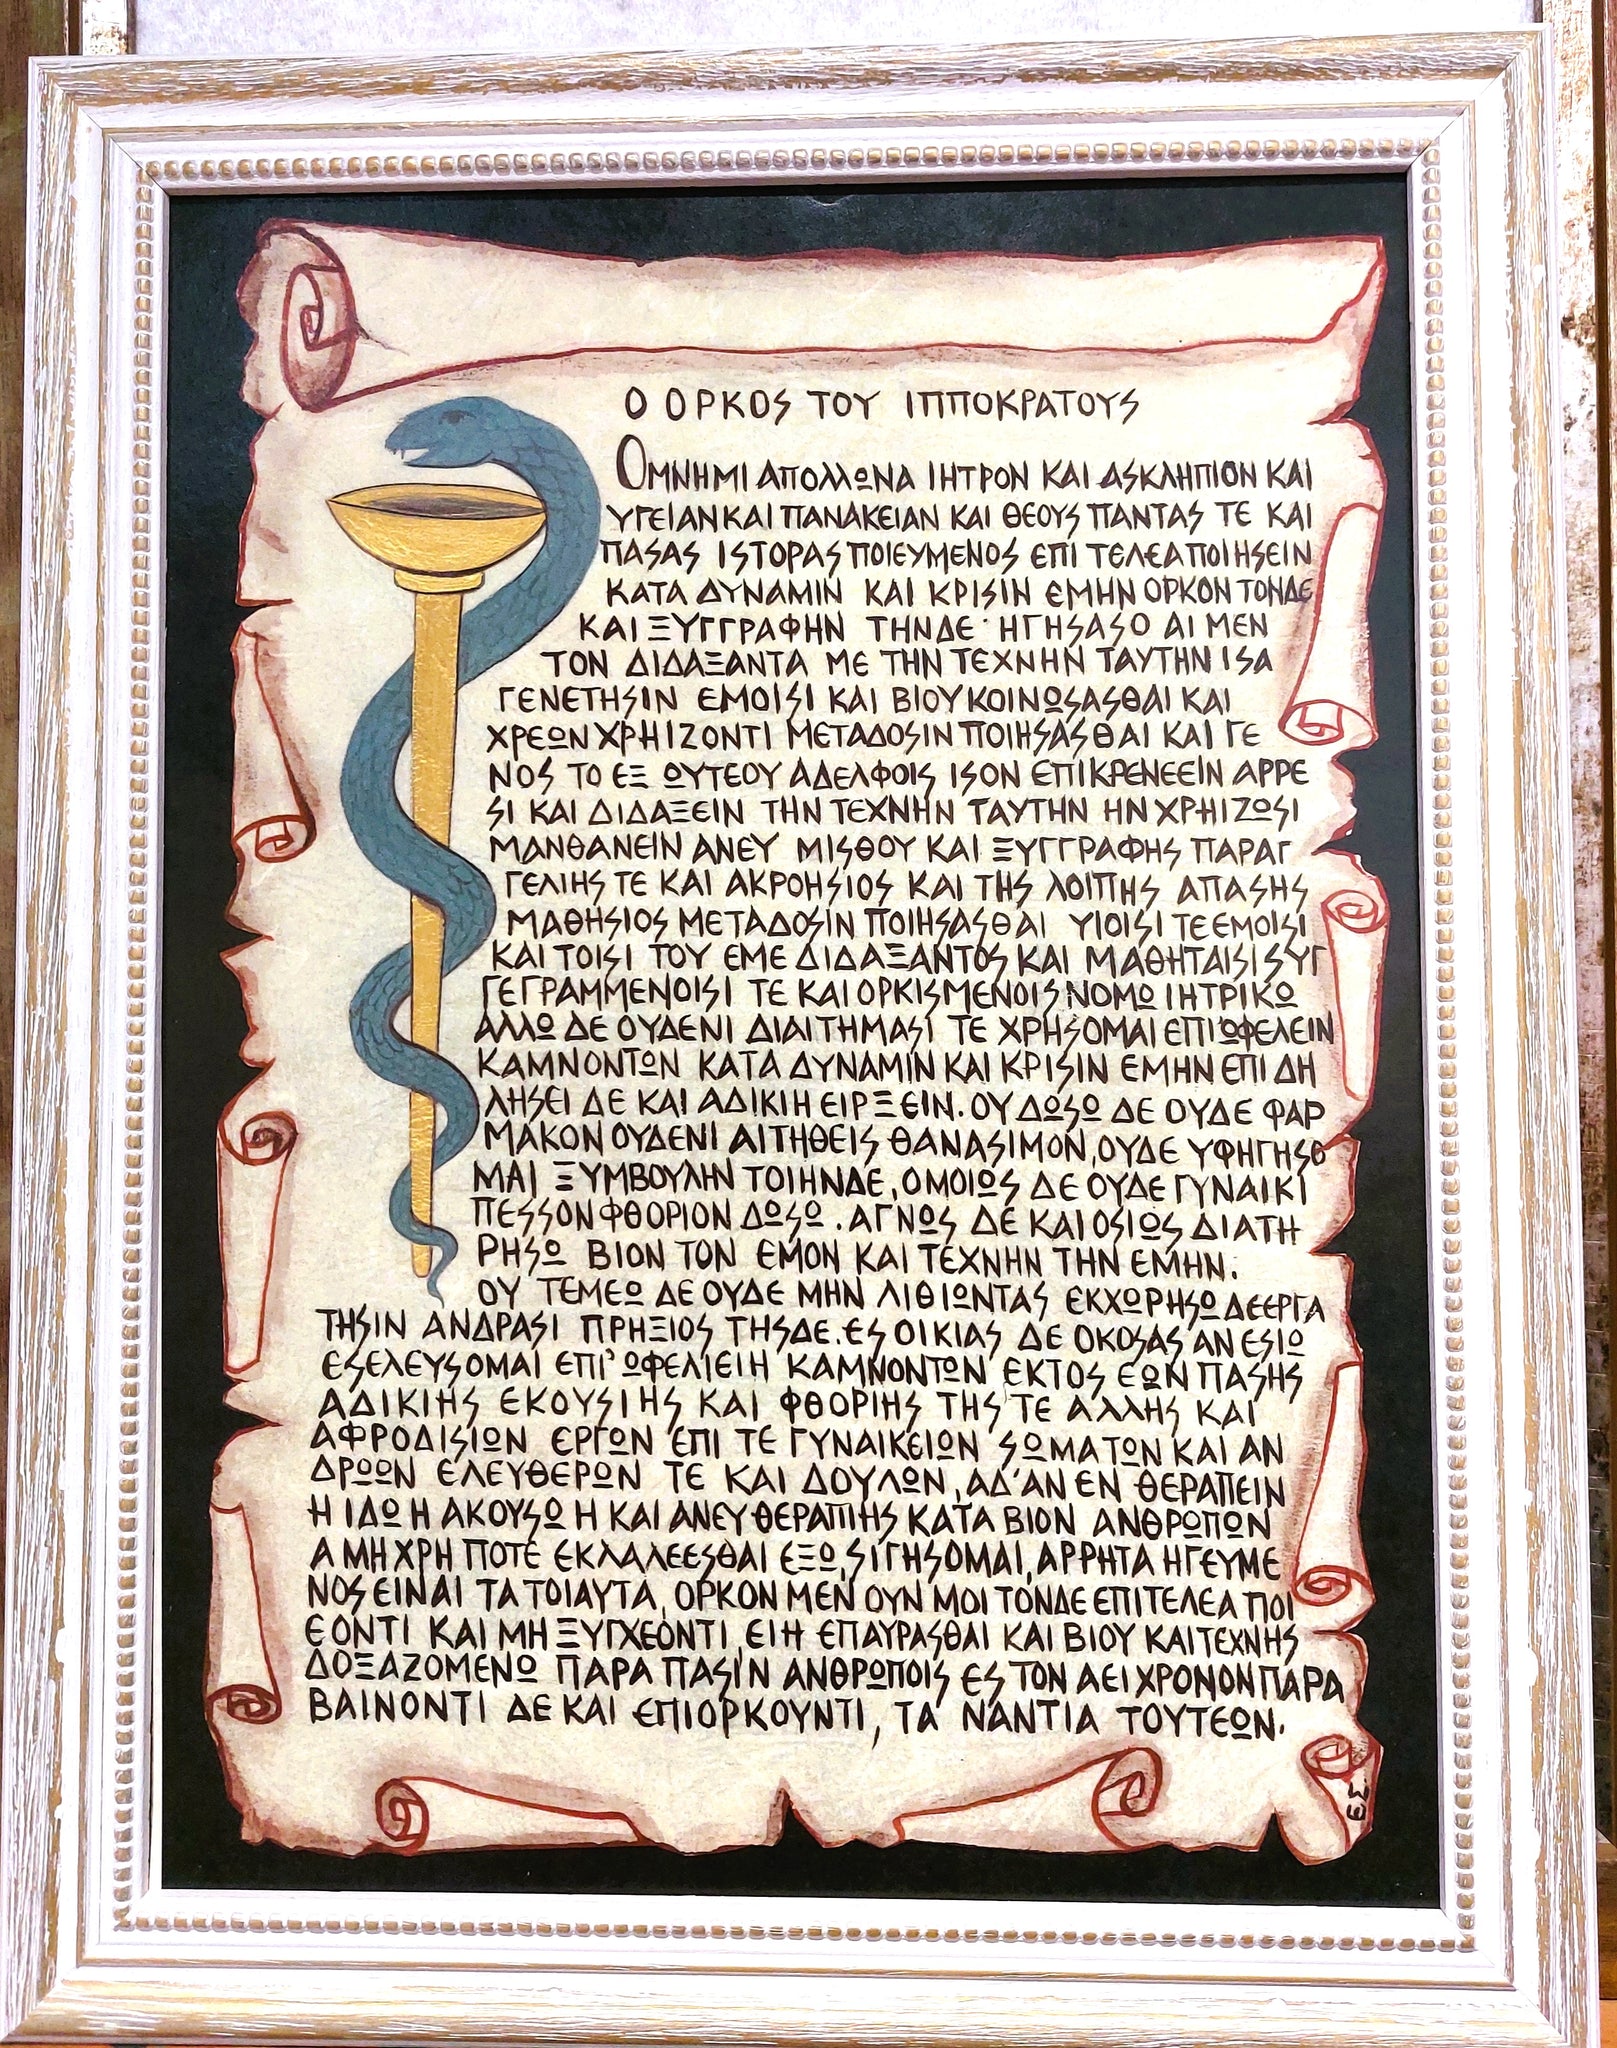 Ο ΟΡΚΟΣ ΤΟΥ ΙΠΠΟΚΡΑΤΟΥΣ
ΟΜΝΗΜΙ ΑΠΟΛΛΩΝΑ ΙΗΤΡΟΝ ΚΑΙ ΑΣΚΛΗΠΙΟΝ ΚΑΙ
ΥΓΕΙΑΝ ΚΑΙ ΠΑΝΑΚΕΙΑΝ ΚΑΙ ΘΕΟΥΣ ΠΑΝΤΑΣ ΤΕ ΚΑΙ
ΠΑΣΑΣ ΙΣΤΟΡΑΣ ΠΟΙΕΥΜΕΝΟΣ ΕΠΙ ΤΕΛΕΑ ΠΟΙΗΣΕΙΝ
ΚΑΤΑ ΔΥΝΑΜΙΝ ΚΑΙ ΚΡΙΣΙΝ ΕΜΗΝ ΟΡΚΟΝ ΤΟΝΔΕ
ΚΑΙ ΞΥΓΓΡΑΦΗΝ ΤΗΝΔΕ· ΗΓΗΣΑΣΟ ΑΙ ΜΕΝ
ΤΟΝ ΔΙΔΑΞΑΝΤΑ ΜΕ ΤΗΝ ΤΕΧΝΗΝ ΤΑΥΤΗΝ ΙΣΑ
ΓΕΝΕΤΗΣΙΝ ΕΜΟΙΣΙ ΚΑΙ ΒΙΟΥ ΚΟΙΝΩΣΑΣΘΑΙ ΚΑΙ
ΧΡΕΩΝ ΧΡΗΙΖΟΝΤΙ ΜΕΤΑΔΟΣΙΝ ΠΟΙΗΣΑΣΘΑΙ ΚΑΙ ΓΕ
ΝΟΣ ΤΟ ΕΞ ΩΥΤΕΟΥ ΑΔΕΛΦΟΙΣ ΙΣΟΝ ΕΠΙΚΡΕΝΕΕΙΝ ΑΡΡΕ
ΣΙ ΚΑΙ ΔΙΔΑΞΕΙΝ ΤΗΝ ΤΕΧΝΗΝ ΤΑΥΤΗΝ ΗΝ ΧΡΗΙΖΩΣΙ
ΜΑΝΘΑΝΕΙΝ ΑΝΕΥ ΜΙΣΘΟΥ ΚΑΙ ΞΥΓΓΡΑΦΗΣ ΠΑΡΑΓ
ΓΕΛΙΗΣ ΤΕ ΚΑΙ ΑΚΡΟΗΣΙΟΣ ΚΑΙ ΤΗΣ ΛΟΙΠΗΣ ΑΠΑΣΗΣ
ΜΑΘΗΣΙΟΣ ΜΕΤΑΔΟΣΙΝ ΠΟΙΗΣΑΣΘΑΙ ΥΙΟΙΣΙ ΤΕ ΕΜΟΙΣΙ
ΚΑΙ ΤΟΙΣΙ ΤΟΥ ΕΜΕ ΔΙΔΑΞΑΝΤΟΣ ΚΑΙ ΜΑΘΗΤΑΙΣΙ ΣΥΓ
ΓΕΓΡΑΜΜΕΝΟΙΣΙ ΤΕ ΚΑΙ ΟΡΚΙΣΜΕΝΟΙΣ ΝΟΜΩ ΙΗΤΡΙΚΩ
ΑΛΛΩ ΔΕ ΟΥΔΕΝΙ ΔΙΑΙΤΗΜΑΣΙ ΤΕ ΧΡΗΣΟΜΑΙ ΕΠ'ΩΦΕΛΕΙΝ
ΚΑΜΝΟΝΤΩΝ ΚΑΤΑ ΔΥΝΑΜΙΝ ΚΑΙ ΚΡΙΣΙΝ ΕΜΗΝ ΕΠΙ ΔΗ
ΛΗΣΕΙ ΔΕ ΚΑΙ ΑΔΙΚΙΗ ΕΙΡΞΕΙΝ. ΟΥ ΔΩΣΩ ΔΕ ΟΥΔΕ ΦΑΡ
ΜΑΚΟΝ ΟΥΔΕΝΙ ΑΙΤΗΘΕΙΣ ΘΑΝΑΣΙΜΟΝ, ΟΥΔΕ ΥΦΗΓΗΣΟ
ΜΑΙ ΞΥΜΒΟΥΛΗΝ ΤΟΙΗΝΔΕ, ΟΜΟΙΩΣ ΔΕ ΟΥΔΕ ΓΥΝΑΙΚΙ
ΠΕΣΣΟΝ ΦΘΟΡΙΟΝ ΔΩΣΩ. ΑΓΝΩΣ ΔΕ ΚΑΙ ΟΣΙΩΣ ΔΙΑΤΗ
ΡΗΣΩ ΒΙΟΝ ΤΟΝ ΕΜΟΝ ΚΑΙ ΤΕΧΝΗΝ ΤΗΝ ΕΜΗΝ.
ΟΥ ΤΕΜΕΩ ΔΕ ΟΥΔΕ ΜΗΝ ΛΙΘΙΩΝΤΑΣ ΕΚΧΩΡΗΣΩ ΔΕ ΕΡΓΑ
ΤΗΣΙΝ ΑΝΔΡΑΣΙ ΠΡΗΞΙΟΣ ΤΗΣΔΕ. ΕΣ ΟΙΚΙΑΣ ΔΕ ΟΚΟΣΑΣ ΑΝ ΕΣΙΩ
ΕΣΕΛΕΥΣΟΜΑΙ ΕΠ' ΩΦΕΛΙΕΙΗ ΚΑΜΝΟΝΤΩΝ ΕΚΤΟΣ ΕΩΝ ΠΑΣΗΣ
ΑΔΙΚΙΗΣ ΕΚΟΥΣΙΗΣ ΚΑΙ ΦΘΟΡΙΗΣ ΤΗΣ ΤΕ ΑΛΛΗΣ ΚΑΙ
ΑΦΡΟΔΙΣΙΩΝ ΕΡΓΩΝ ΕΠΙ ΤΕ ΓΥΝΑΙΚΕΙΩΝ ΣΩΜΑΤΩΝ ΚΑΙ ΑΝ
ΔΡΩΩΝ ΕΛΕΥΘΕΡΩΝ ΤΕ ΚΑΙ ΔΟΥΛΩΝ, ΑΔ'ΑΝ ΕΝ ΘΕΡΑΠΕΙΝ
Η ΙΔΩ Η ΑΚΟΥΣΩ Η ΚΑΙ ΑΝΕΥ ΘΕΡΑΠΙΗΣ ΚΑΤΑ ΒΙΟΝ ΑΝΘΡΩΠΩΝ
Α ΜΗ ΧΡΗ ΠΟΤΕ ΕΚΛΑΛΕΕΣΘΑΙ ΕΞΩ, ΣΙΓΗΣΟΜΑΙ, ΑΡΡΗΤΑ ΗΓΕΥΜΕ
ΝΟΣ ΕΙΝΑΙ ΤΑ ΤΟΙΑΥΤΑ, ΟΡΚΟΝ ΜΕΝ ΟΥΝ ΜΟΙ ΤΟΝΔΕ ΕΠΙΤΕΛΕΑ ΠΟΙ
ΕΟΝΤΙ ΚΑΙ ΜΗ ΞΥΓΧΕΟΝΤΙ, ΕΙΗ ΕΠΑΥΡΑΣΘΑΙ ΚΑΙ ΒΙΟΥ ΚΑΙ ΤΕΧΝΗΣ
ΔΟΞΑΖΟΜΕΝΩ ΠΑΡΑ ΠΑΣΙΝ ΑΝΘΡΩΠΟΙΣ ΕΣ ΤΟΝ ΑΕΙ ΧΡΟΝΟΝ ΠΑΡΑ
ΒΑΙΝΟΝΤΙ ΔΕ ΚΑΙ ΕΠΙΟΡΚΟΥΝΤΙ, ΤΑ ΝΑΝΤΙΑ ΤΟΥΤΕΩΝ.
ΕΣ